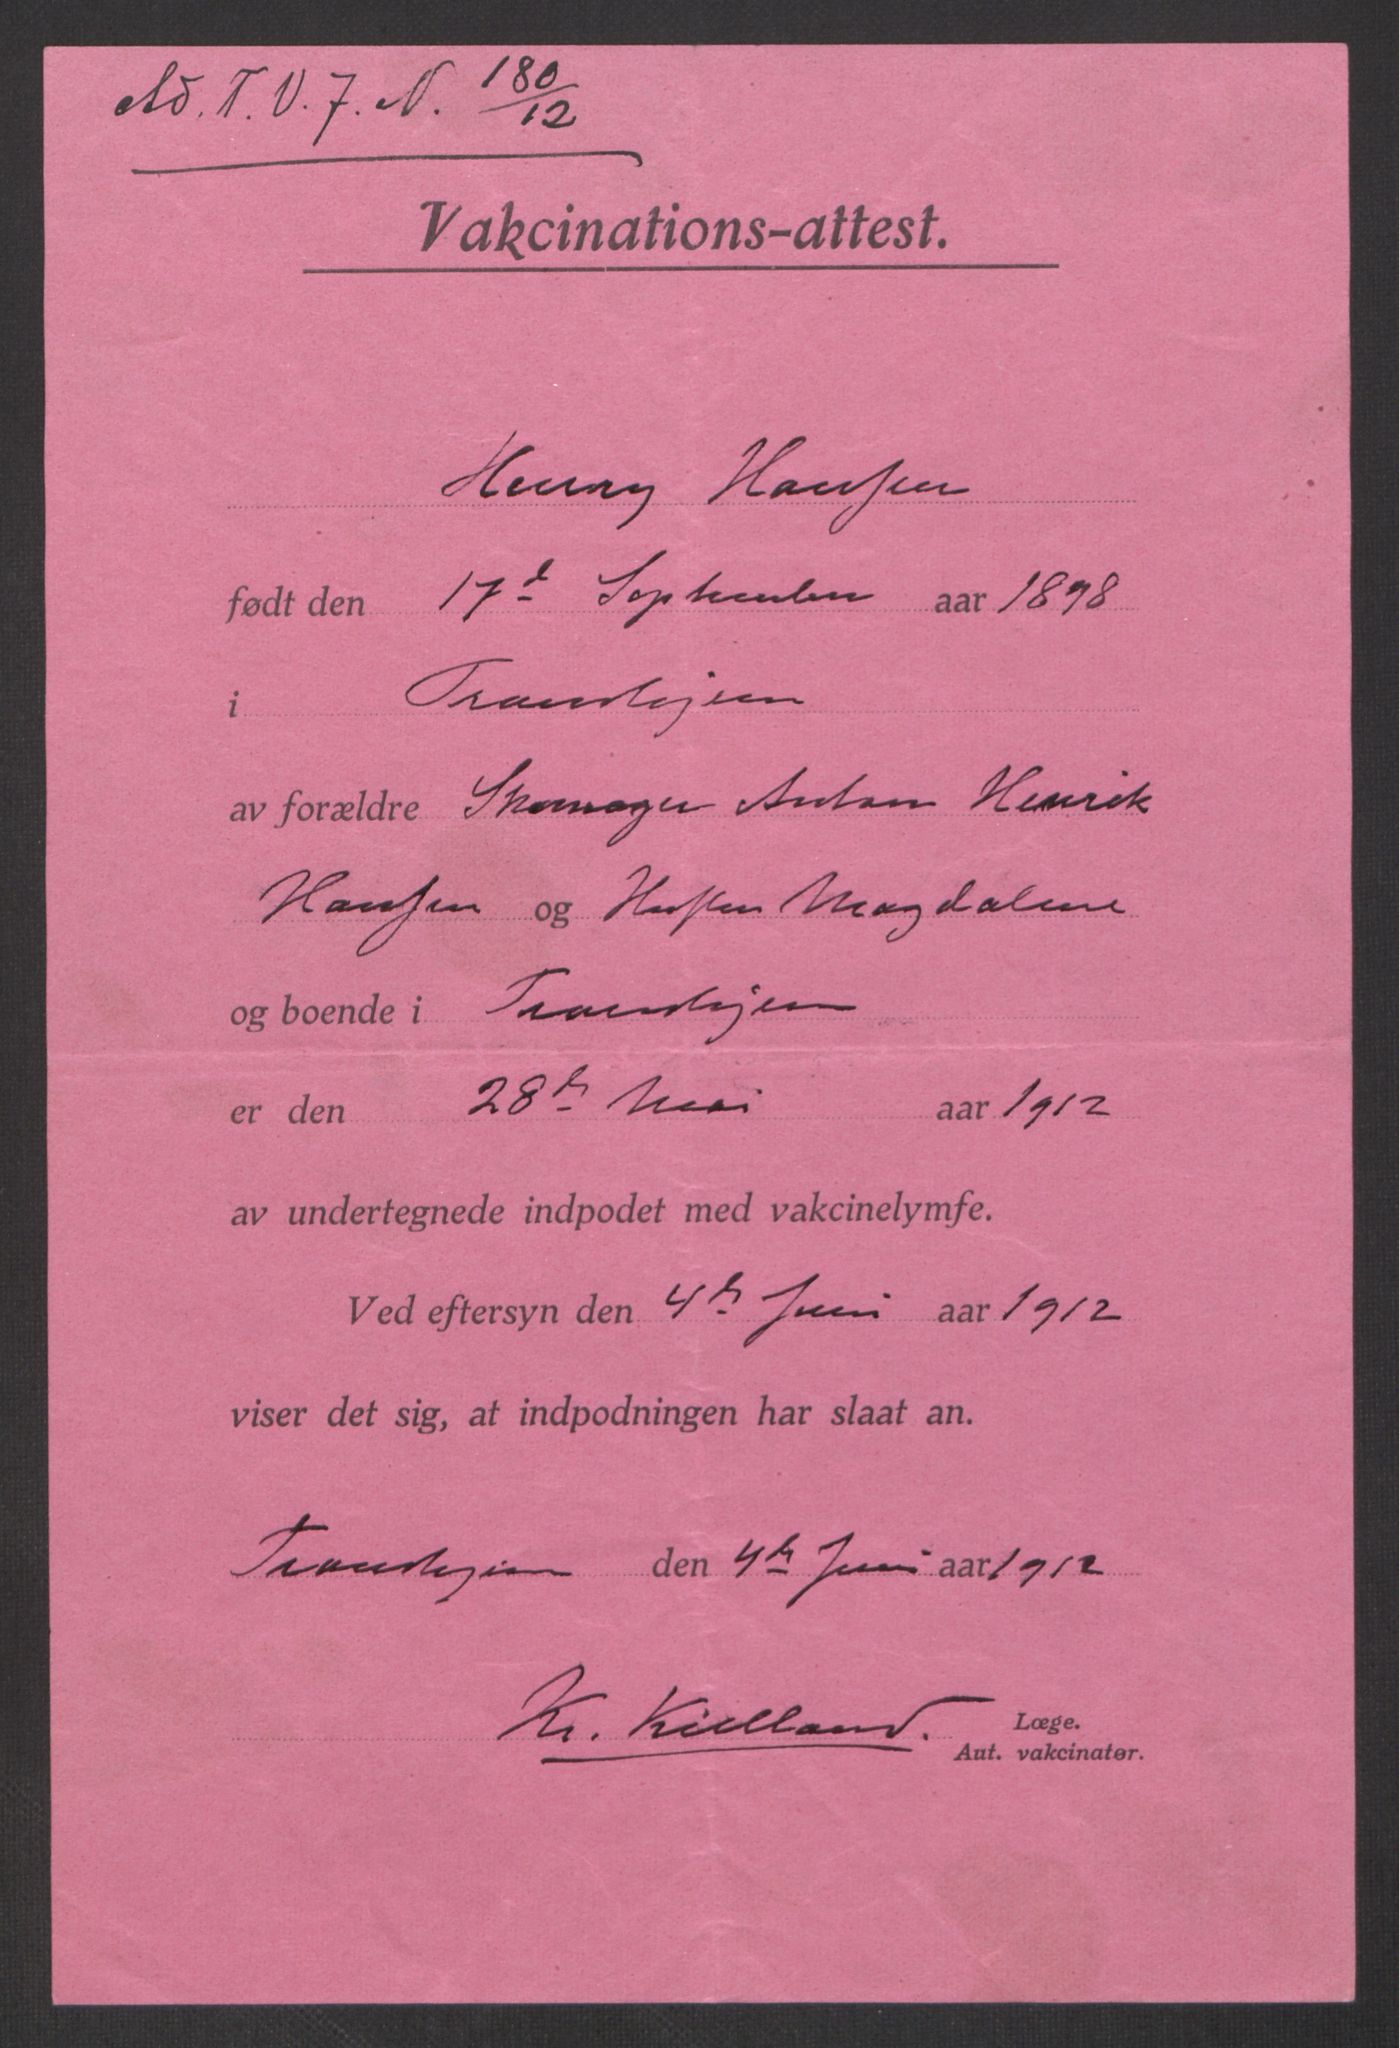 Ad. T. V. J. N. 180/12
Vakcinations-attest.
Henry Hansen
født den 17d September aar 1898
i Trondhjem
av forældre Skomager Anton Henrik
Hansen og Hustru Magdalene
og boende i Trondhjem
er den 28de Mai aar 1912
av undertegnede indpodet med vakcinelymfe.
Ved eftersyn den 4de Juni aar 1912
viser det sig, at indpodningen har slaat an.
Trondhjem den 4de Juni aar 1912
Kr. Kielland. Læge.
Aut. vakcinatør.